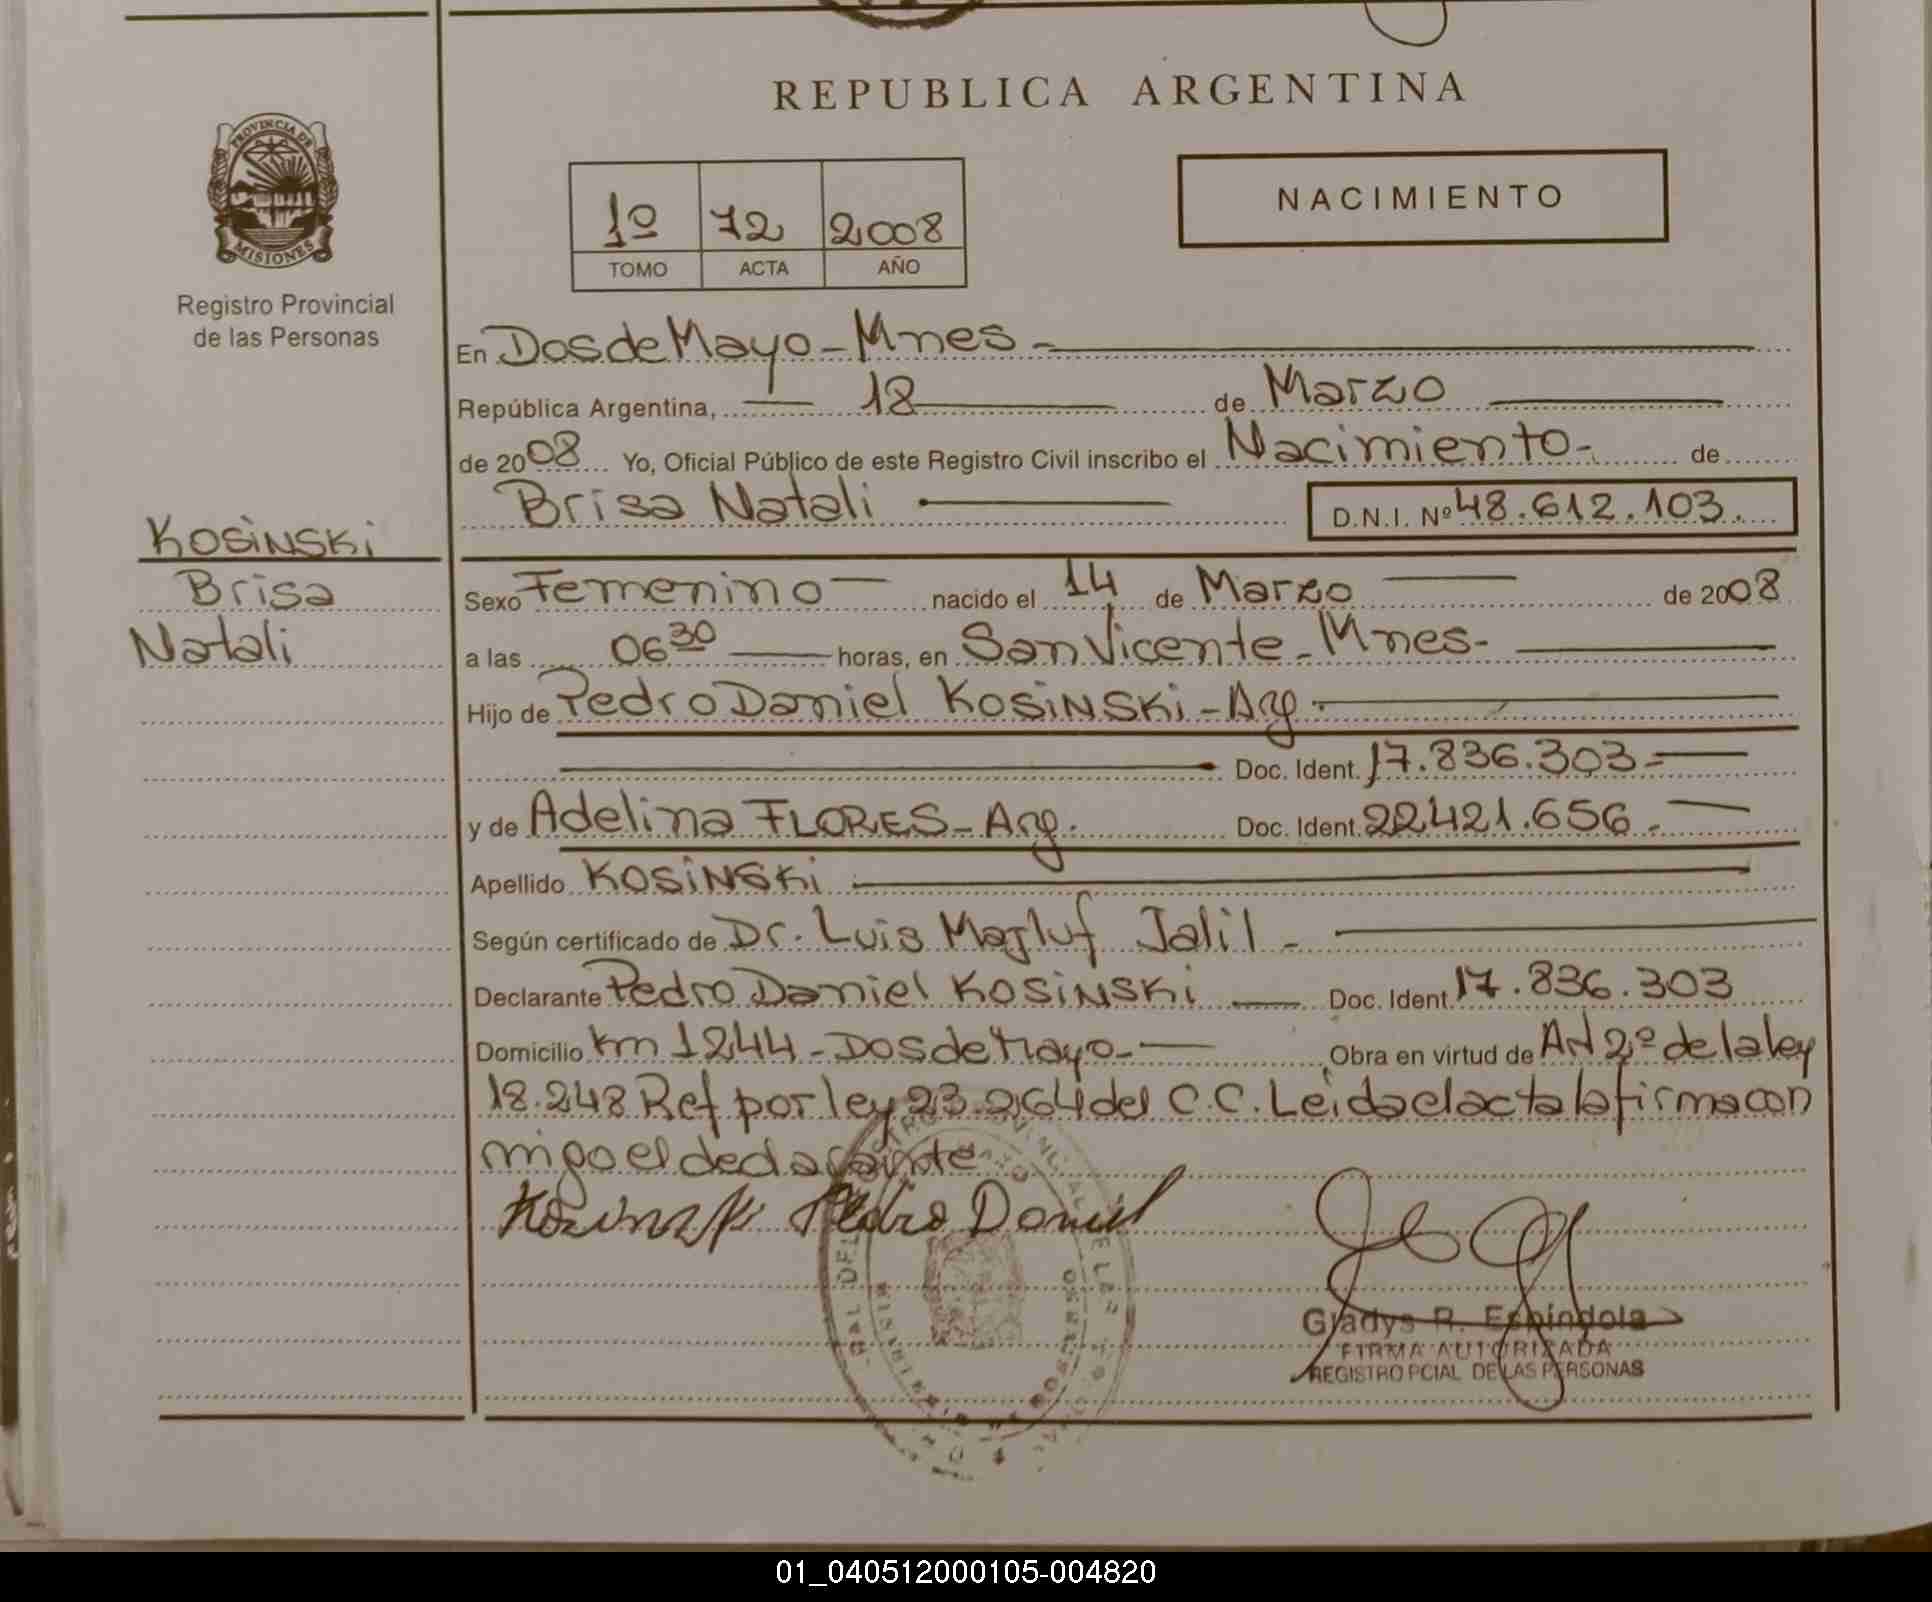 REPUBLICA ARGENTINA
PROVINCIA DE MISIONES
Registro Provincial
de las Personas
1º 72 2008
TOMO ACTA AÑO
NACIMIENTO
En Dos de Mayo - Mnes -
República Argentina, 18 de Marzo
de 2008 Yo, Oficial Público de este Registro Civil inscribo el Nacimiento - de
Brisa Natali D.N.I. Nº 48.612.103.
KOSINSKI
Brisa
Natali
Sexo Femenino nacido el 14 de Marzo de 2008
a las 06 30 horas, en San Vicente - Mnes -
Hijo de Pedro Daniel KOSINSKI - Arg.
Doc. Ident. 17.836.303 -
y de Adelina FLORES - Arg. Doc. Ident. 22421.656 -
Apellido KOSINSKI
Según certificado de Dr. Luis Magluf Jalil -
Declarante Pedro Daniel KOSINSKI Doc. Ident. 17.836.303
Domicilio Km 1244 - Dos de Mayo - , Obra en virtud de Art 2º de la ley
18.248 Ref por ley 23.264 del C.C. Leida el acta la firma con
migo el declarante
Kosinski Pedro Daniel
Gladys R. Espindola
FIRMA AUTORIZADA
REGISTRO PCIAL DE LAS PERSONAS
01_040512000105-004820